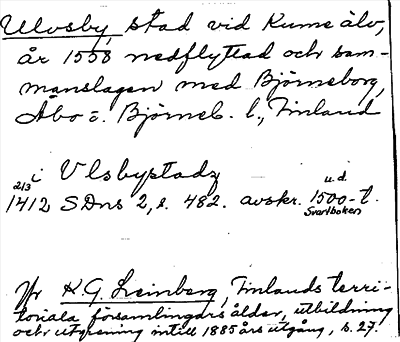 Ulvsby, stad vid Kumo älv,
år 1558 nedflyttad och sam-
manslagen med Björneborg,
Åbo o. Björneb. l., Finland
i Vlsbystadz
2/3 u.d.
1412 SDns 2, s. 482. avskr. 1500-t.
Svartboken
Jfr K.G. Leinberg, Finlands terri-
toriala församlingars ålder, utbildning
och utgrening intill 1885 års utgång, s. 27.